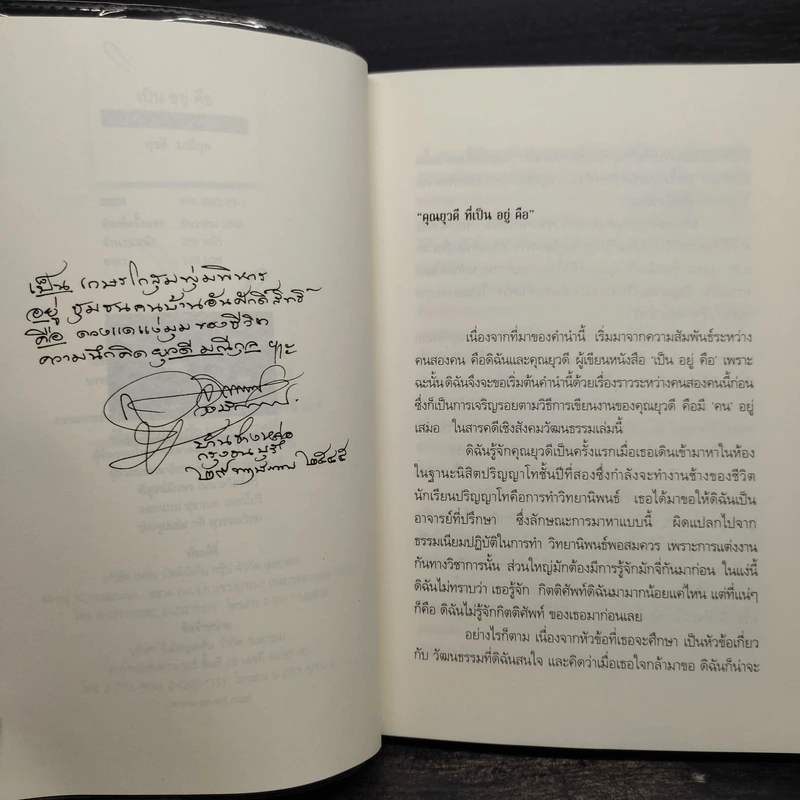 เป็น เกษรโกสุมพุ่มพิหาร
อยู่ ชุมชนคนบ้านอันศักดิ์สิทธิ์
คือ ดวงแดแง่มุมของชีวิต
ความนึกคิดยุวดี มณีกุล
บ้านช่างหล่อ
กรุงธนบุรี
๒๕๔๕
"คุณยุวดี ที่เป็น อยู่ คือ"
เนื่องจากที่มาของคำนำนี้ เริ่มมาจากความสัมพันธ์ระหว่าง
คนสองคน คือดิฉันและคุณยุวดี ผู้เขียนหนังสือ 'เป็น อยู่ คือ' เพราะ
ฉะนั้นดิฉันจึงจะขอเริ่มต้นคำนำนี้ด้วยเรื่องราวระหว่างคนสองคนนี้ก่อน
ซึ่งก็เป็นการเจริญรอยตามวิธีการเขียนงานของคุณยุวดี คือมี 'คน' อยู่
เสมอ ในสารคดีเชิงสังคมวัฒนธรรมเล่มนี้
ดิฉันรู้จักคุณยุวดีเป็นครั้งแรกเมื่อเธอเดินเข้ามาหาในห้อง
ในฐานะนิสิตปริญญาโทชั้นปีที่สองซึ่งกำลังจะทำงานช้างของชีวิต
นักเรียนปริญญาโทคือการทำวิทยานิพนธ์ เธอได้มาขอให้ดิฉันเป็น
อาจารย์ที่ปรึกษา ซึ่งลักษณะการมาหาแบบนี้ ผิดแปลกไปจาก
ธรรมเนียมปฏิบัติในการทำ วิทยานิพนธ์พอสมควร เพราะการแต่งงาน
กันทางวิชาการนั้น ส่วนใหญ่มักต้องมีการรู้จักมักจี่กันมาก่อน ในแง่นี้
ดิฉันไม่ทราบว่า เธอรู้จัก กิตติศัพท์ดิฉันมามากน้อยแค่ไหน แต่ที่แน่ๆ
ก็คือ ดิฉันไม่รู้จักกิตติศัพท์ ของเธอมาก่อนเลย
อย่างไรก็ตาม เนื่องจากหัวข้อที่เธอจะศึกษา เป็นหัวข้อเกี่ยว
กับ วัฒนธรรมที่ดิฉันสนใจ และคิดว่าเมื่อเธอใจกล้ามาขอ ดิฉันก็น่าจะ